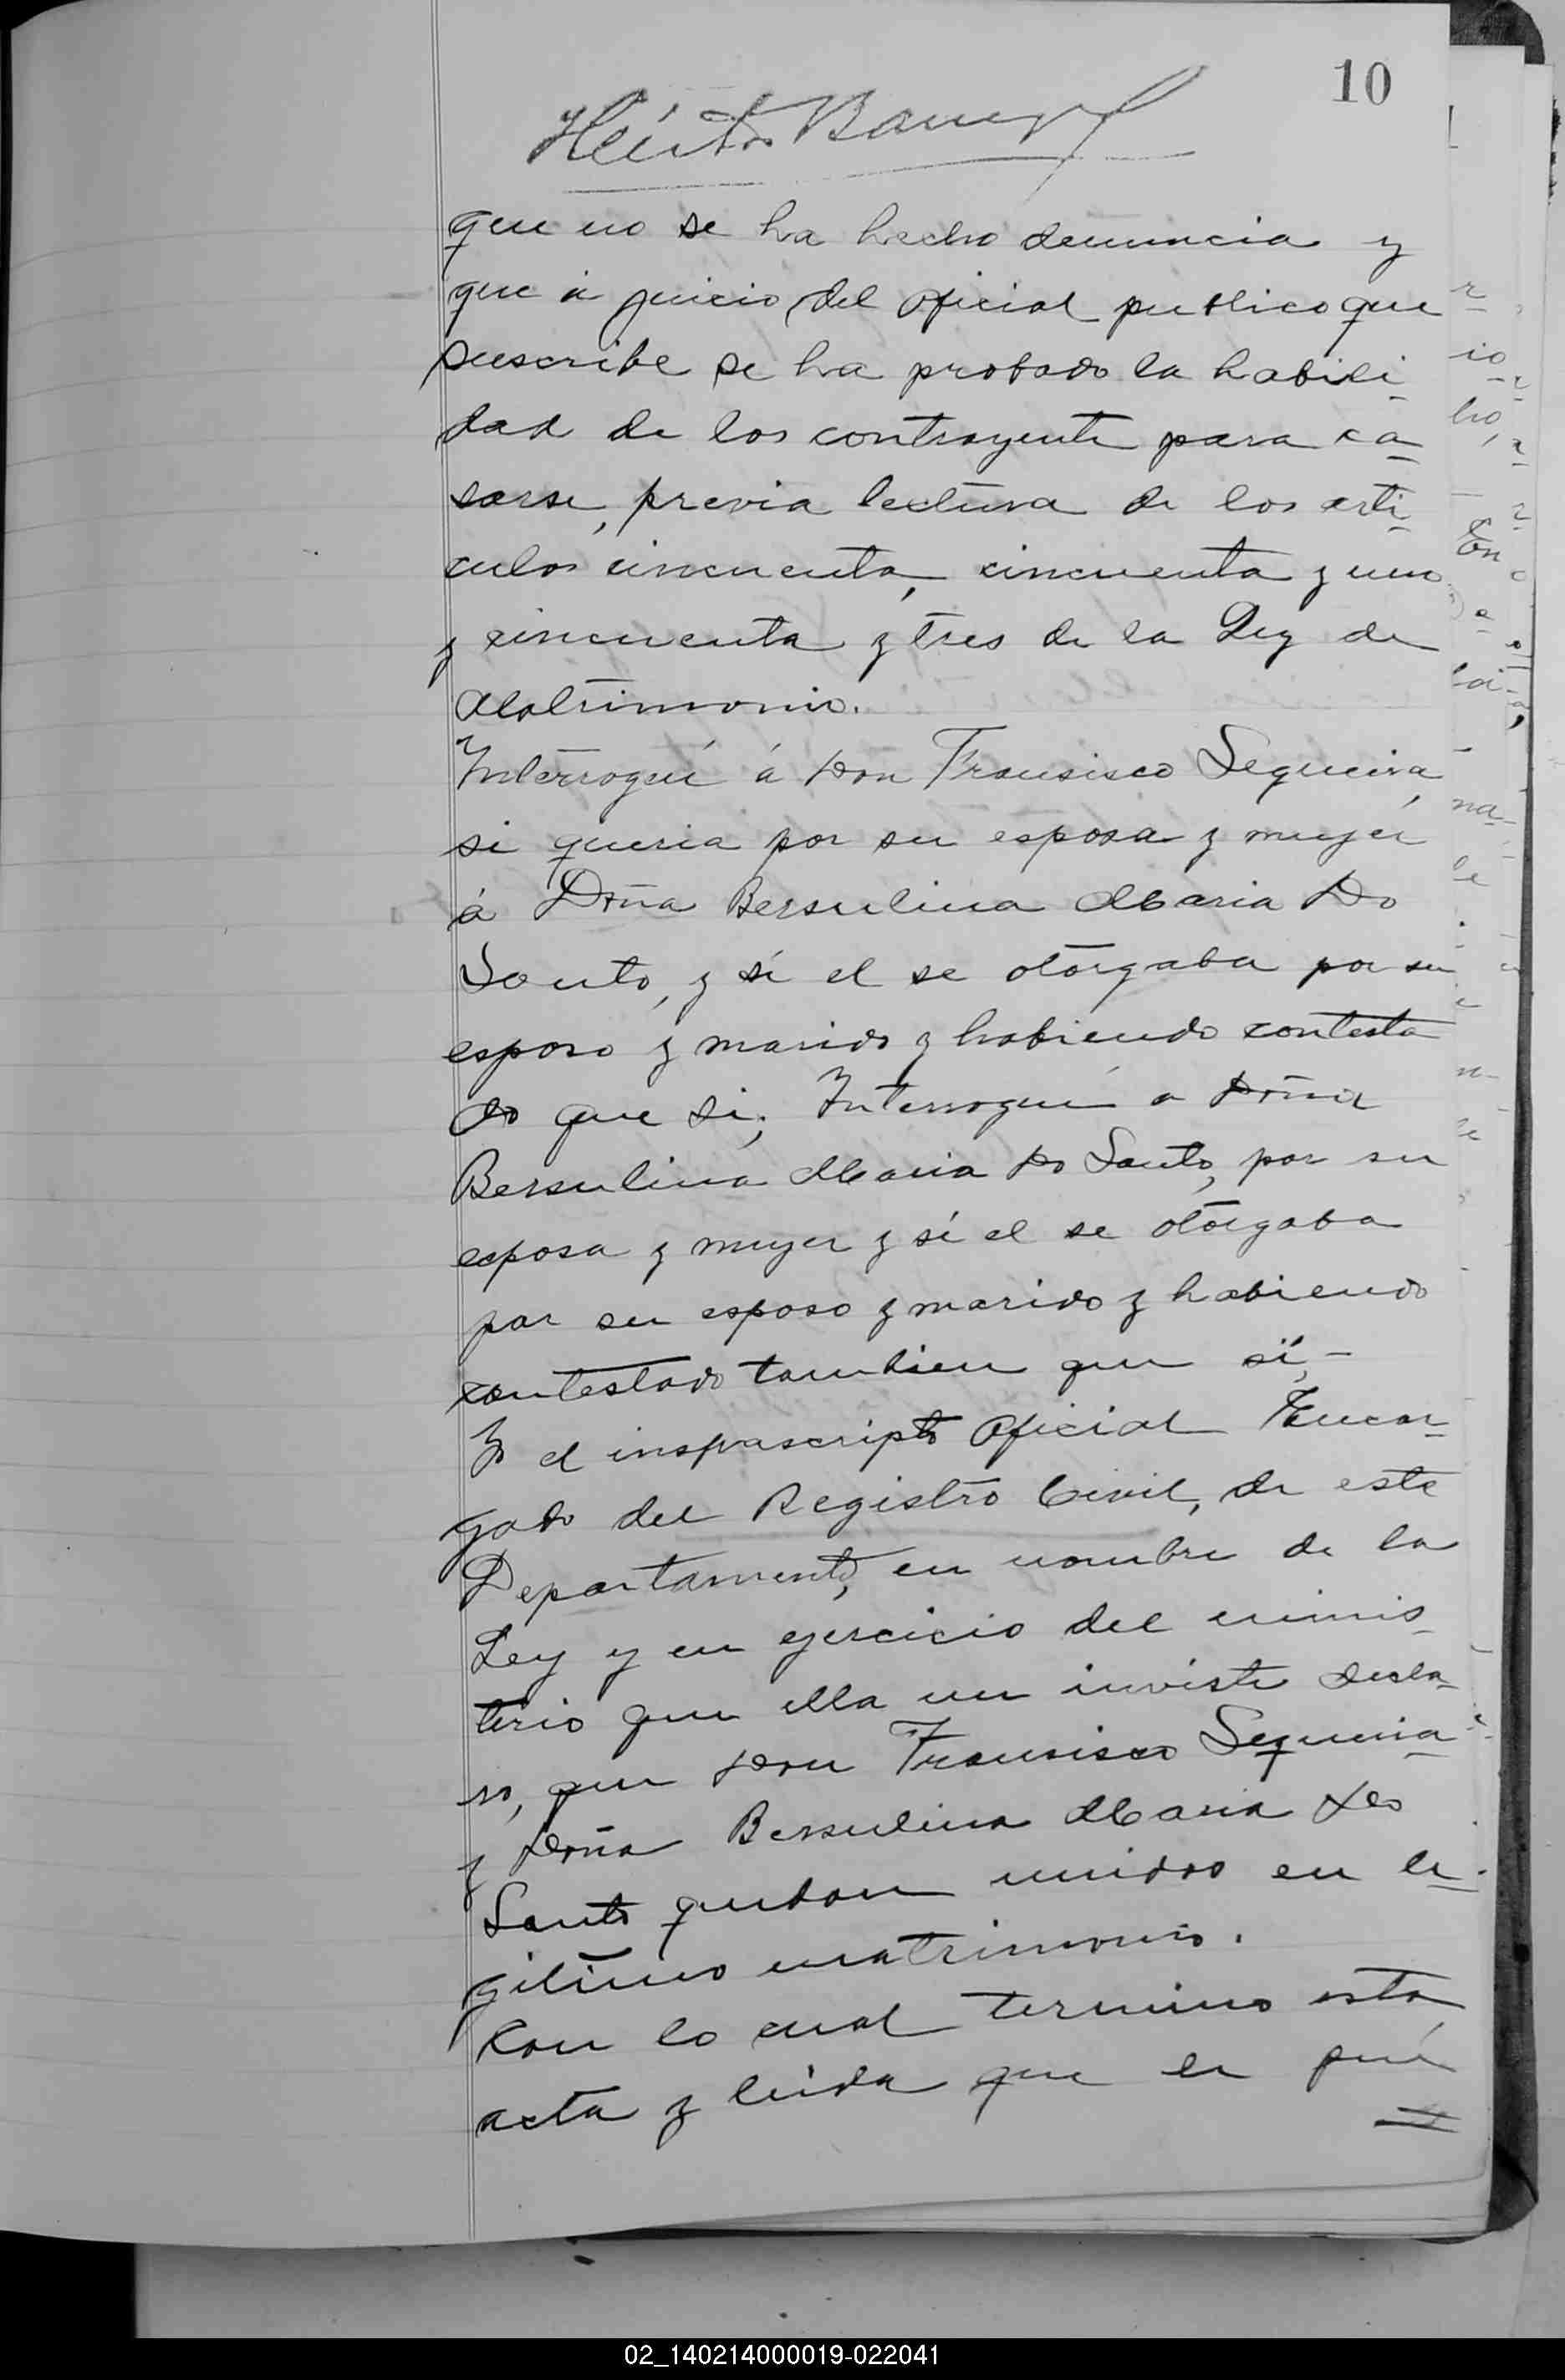 10
Héctor
que no se ha hecho denuncia y
que á juicio del oficial publico que
suscribe se ha probado la habili
dad de los contrayente para ca
sarse, previa lectura de los arti
culos cincuenta, cincuenta y uno
y cincuenta y tres de la Ley de
Matrimonio.
Interrogué á Don Fransisco Sequeira,
si queria por su esposa y mujer
á Doña Bersulina Maria Do
Santo, y si el se otorgaba por su
esposo y marido y habiendo contesta
do que si; Interrogué a Doña
Bersulina Maria Do Santo, por su
esposa y mujer y sí el se otorgaba
por su esposo y marido y habiendo
contestado tambien que sí,-
Yo el insprascripto Oficial Encar
gado del Registro Civil, de este
Departamento, en nombre de la
Ley y en ejercicio del minis
terio que ella me inviste decla
ro, que Don Fransisco Sequeira
y Doña Bersulina Maria Do
Santo quedan unidos en le
gitimo matrimonio.
Con lo cual termino esta
acta y leida que le fué
02_140214000019-022041